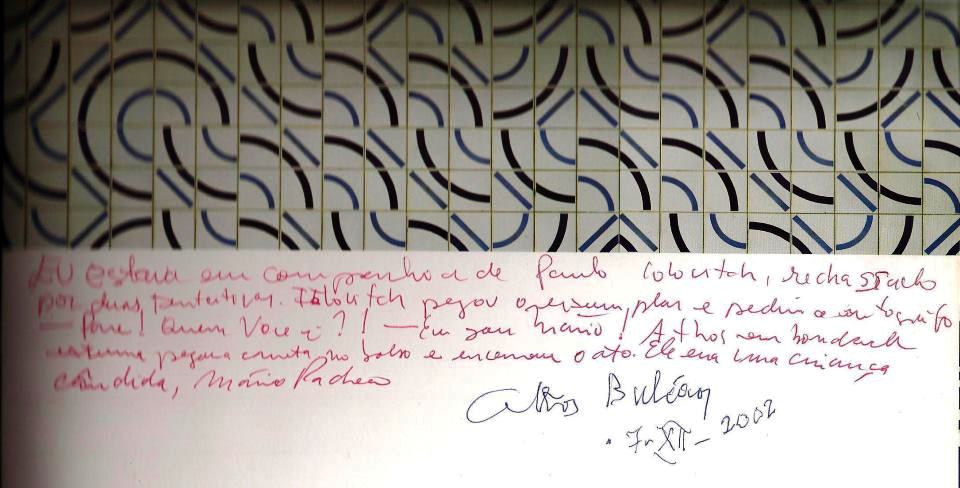 EU estava em companhia de Paulo Iolovitch, rechassado
por duas tentativas. Iolovitch pegou o exemplar e pediu o autógrafo
— ! Quem Você é ? ! — Eu sou Mário ! Athos em bondade
pegara a caneta no bolso e encenou o ato. Ele era uma criança
cândida, Mário Pacheco
Athos Bulcão
7-XII-2002